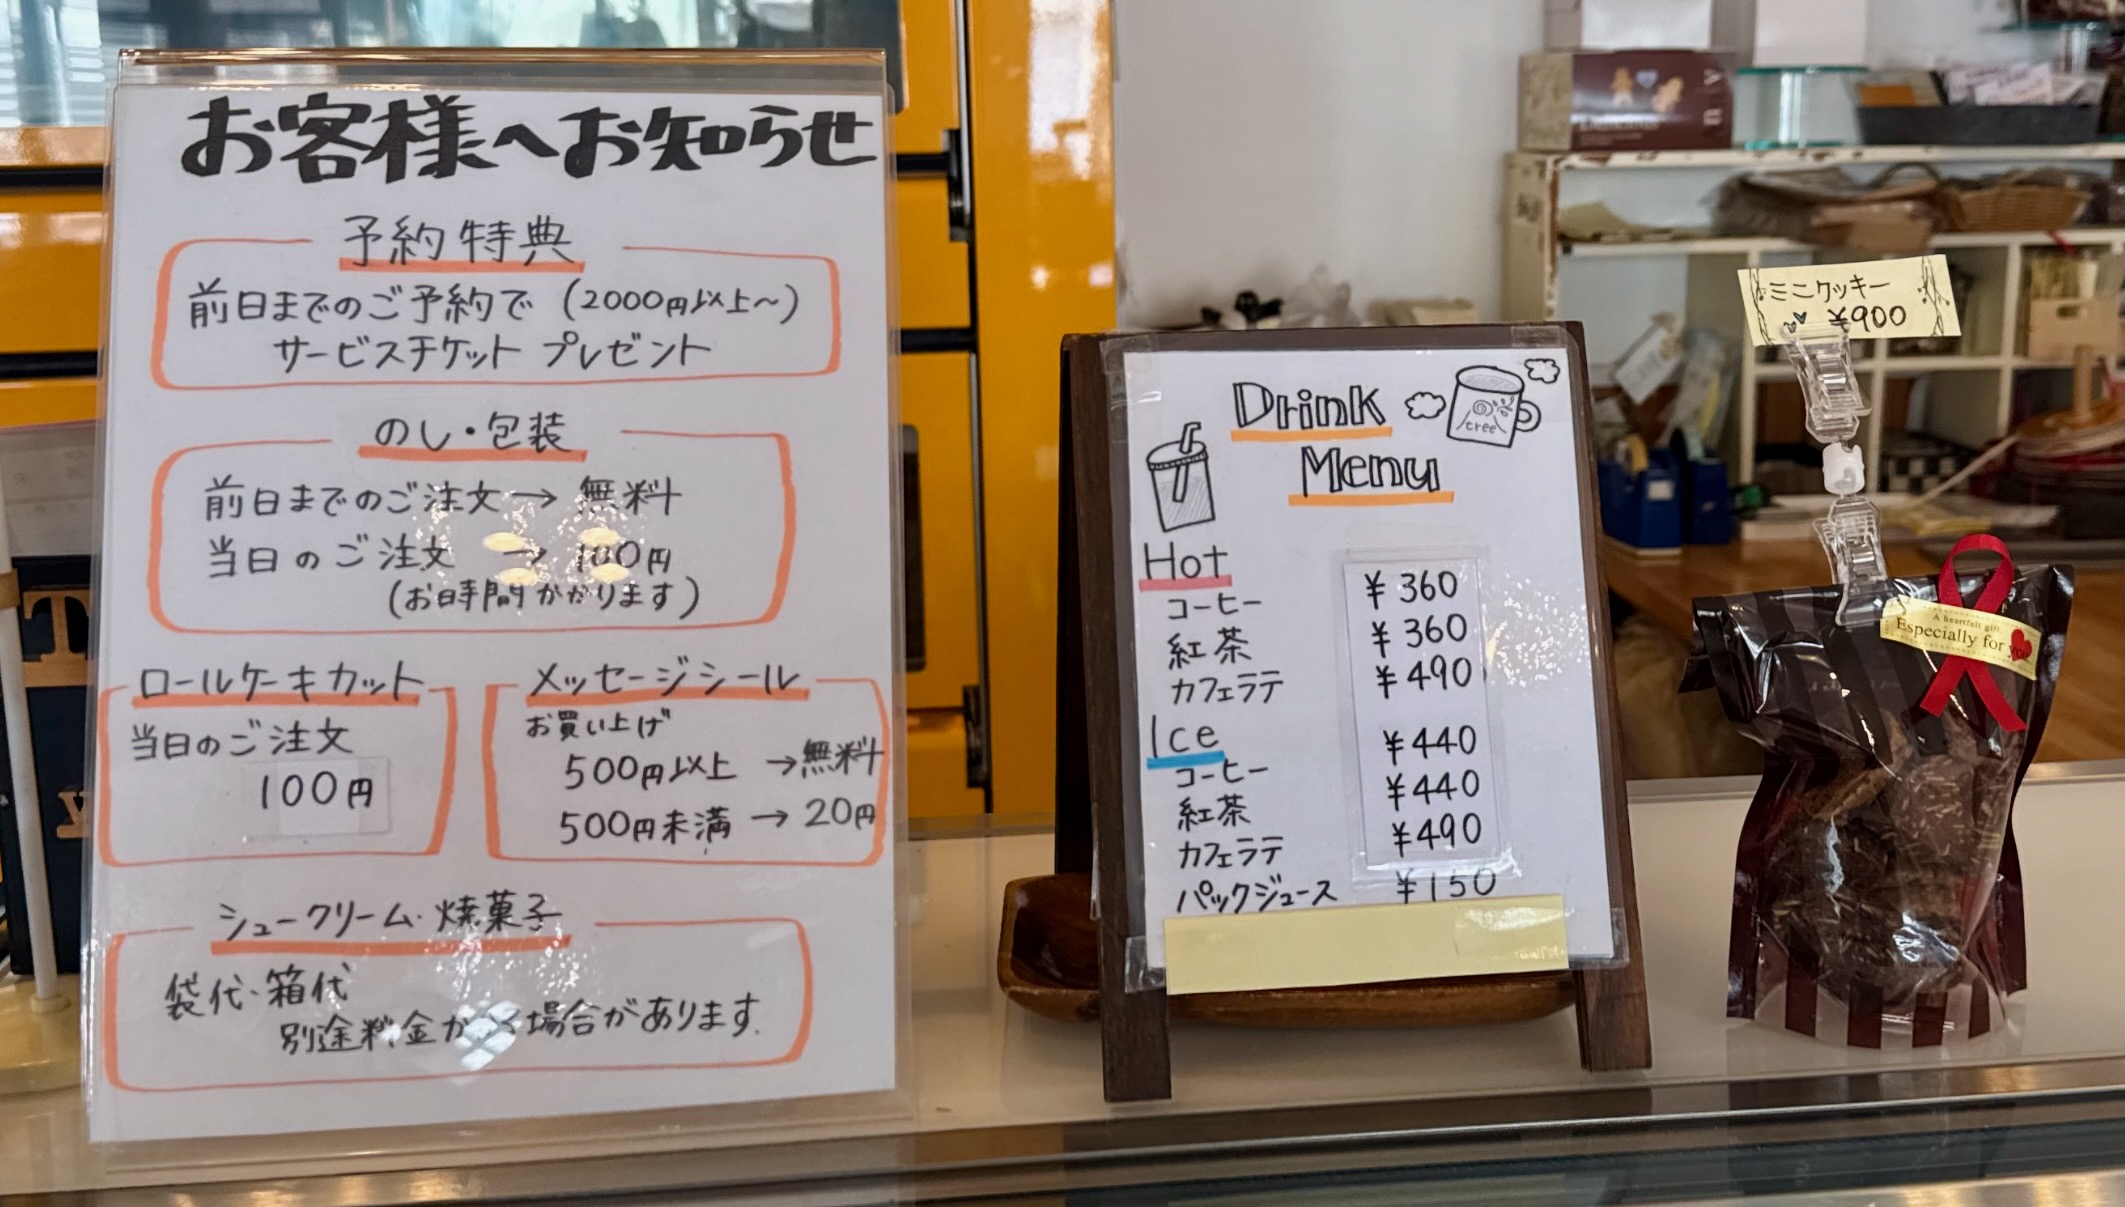 お客様へお知らせ
予約特典
前日までのご予約で (2000円以上〜)
サービスチケット プレゼント
のし・包装
前日までのご注文→ 無料
当日のご注文 → 100円
(お時間かかります)
ロールケーキカット
当日のご注文
100円
メッセージシール
お買い上げ
500円以上 →無料
500円未満 → 20円
シュークリーム・焼菓子
袋代・箱代
別途料金がく場合があります.
Drink
Menu
tree
Hot
コーヒー ¥360
紅茶 ¥360
カフェラテ ¥490
Ice
コーヒー ¥440
紅茶 ¥440
カフェラテ ¥490
パックジュース ¥150
ミニクッキー
¥900
A heartfelt gift
Especially for you